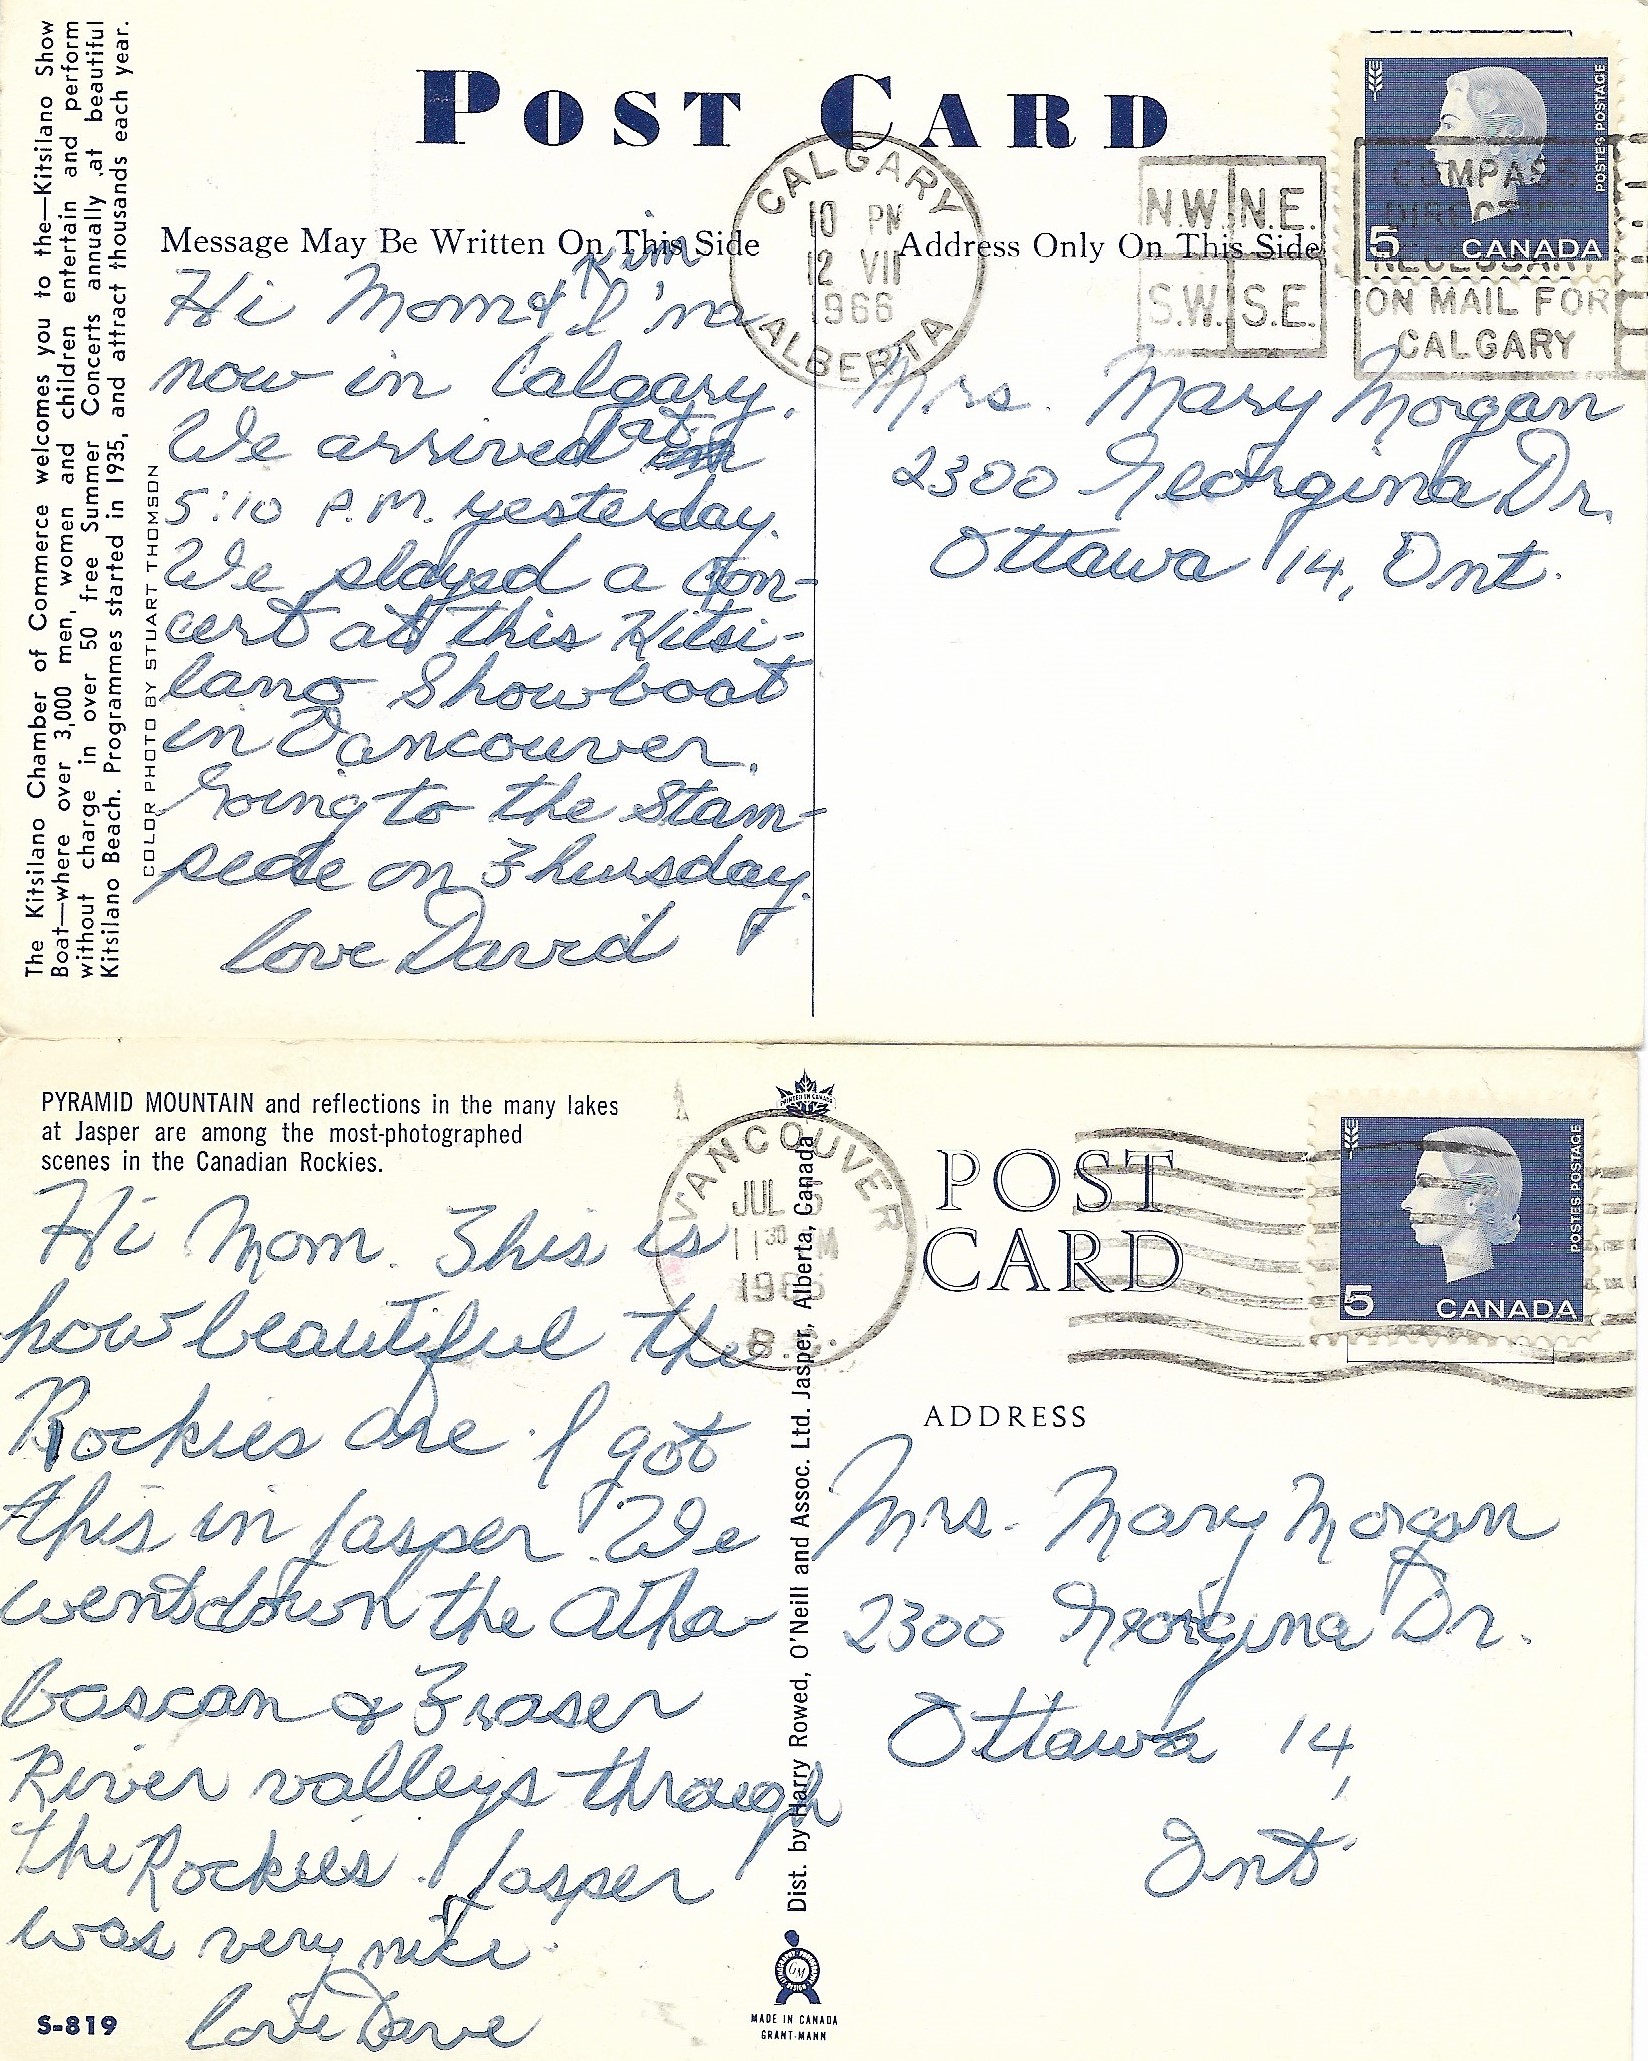 The Kitsilano Chamber of Commerce welcomes you to the—Kitsilano Show
Boat—where over 3,000 men, women and children entertain and perform
without charge in over 50 free Summer Concerts annually at beautiful
Kitsilano Beach. Programmes started in 1935, and attract thousands each year.
COLOR PHOTO BY STUART THOMSON
POST CARD
Message May Be Written On This Side
Address Only On This Side
CALGARY
10 PM
12 VII
1966
ALBERTA
N.W. N.E.
S.W. S.E.
COMPASS
NECESSARY
ON MAIL FOR
CALGARY
POSTES POSTAGE
5 CANADA
Kim
Hi Mom & I'm
now in Calgary.
We arrived at
5:10 P.M. yesterday.
We played a con-
cert at this Kitsi-
lano Showboat
in Vancouver.
Going to the Stam-
pede on Thursday.
love David
Mrs. Mary Morgan
2300 Georgina Dr.
Ottawa 14, Ont.
PYRAMID MOUNTAIN and reflections in the many lakes
at Jasper are among the most-photographed
scenes in the Canadian Rockies.
Hi Mom. This is
how beautiful the
Rockies are. I got
this in Jasper. We
went down the Atha-
bascan & Fraser
River valleys through
the Rockies. Jasper
was very nice.
love Dave
S-819
PRINTED IN CANADA
Dist. by Harry Rowed, O'Neill and Assoc. Ltd. Jasper, Alberta, Canada
MADE IN CANADA
GRANT-MANN
VANCOUVER
JUL
11 30 M
B.C.
POST
CARD
POSTES POSTAGE
5 CANADA
ADDRESS
Mrs. Mary Morgan
2300 Georgina Dr.
Ottawa 14,
Ont.